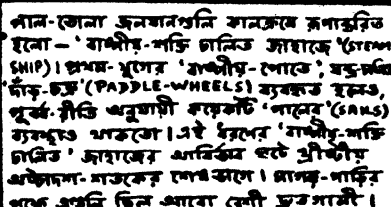 পাল-তোলা জলযানগুলি কালক্রমে রূপান্তরিত
হলো – 'বাষ্পীয়-শক্তি চালিত জাহাজে' (STEAM
SHIP)। প্রথম-যুগের 'বাষ্পীয়-পোতে' যন্ত্র-চালিত
'দাঁড়-চক্র' (PADDLE-WHEELS) ব্যবহৃত হলেও,
পূর্ব্ব-রীতি অনুযায়ী কয়েকটি 'পালের' (SAILS)
ব্যবস্থাও থাকতো। এই ধরণের 'বাষ্পীয়-শক্তি
চালিত' জাহাজের আবির্ভাব ঘটে খ্রীষ্টীয়
অষ্টাদশ-শতকের শেষ ভাগে। সাগর-পাড়ির
পক্ষে এগুলি ছিল আরো বেশী দ্রুতগামী।